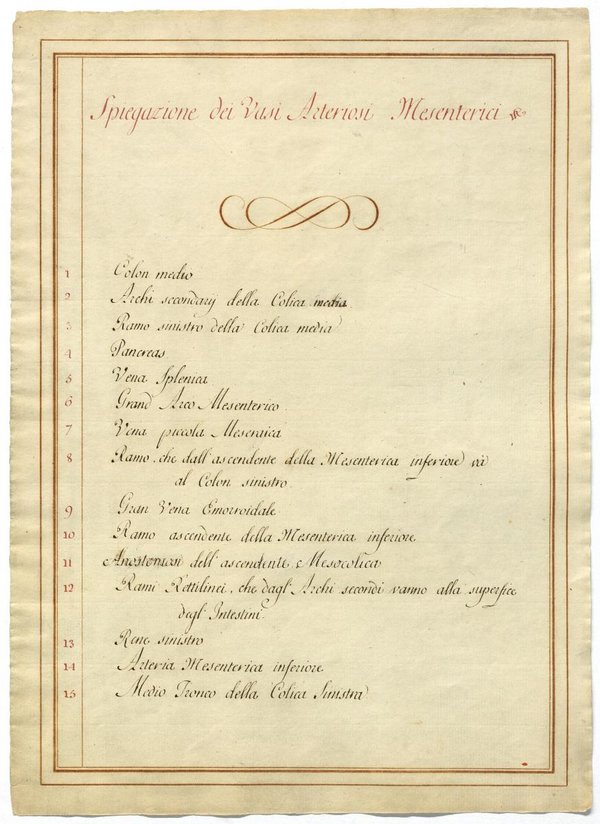 Spiegazione dei Vasi Arteriosi Mesenterici
1 Colon medio
2 Archi secondarij della Colica media
3 Ramo sinistro della Colica media
4 Pancreas
5 Vena Splenica
6 Grand' Arco Mesenterico.
7 Vena piccola Meseraica
8 Ramo, che dall'ascendente della Mesenterica inferiore và
al Colon sinistro.
9 Gran Vena Emorroidale
10 Ramo ascendente della Mesenterica inferiore
11 Anostomosi dell'ascendente, e Mesocolica
12 Rami Rettilinei, che dagl'Archi secondi vanno alla superfice
degl'Intestini.
13 Rene sinistro
14 Arteria Mesenterica inferiore
15 Medio Tronco della Colica Sinistra